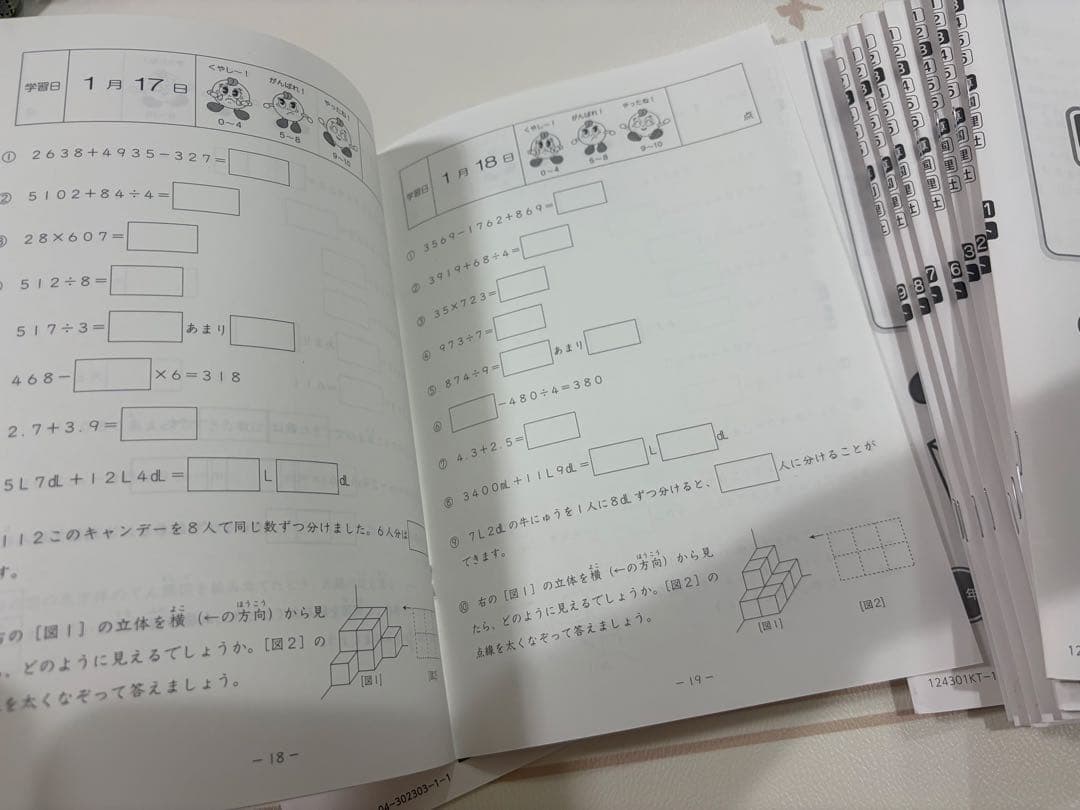 学習日
1月17日
くやし〜!
がんばれ!
やったね!
0〜4
5〜8
9〜10
① 2638+4935-327=
② 5102+84÷4=
28×607=
512÷8=
517÷3= あまり
468- ×6=318
2.7+3.9=
5L7dL+12L4dL= L dL
112このキャンデーを8人で同じ数ずつ分けました。6人分は
す。
右の[図1]の立体を横(←の方向)から見
よこ
ほうこう
ら、どのように見えるでしょうか。[図2]の
を太くなぞって答えましょう。
[図1]
-18-
04-302303-1-1
学習日
1月18日
くやし〜!
がんばれ!
やったね!
0〜4
5〜8
9〜10
点
① 3569-1762+869=
② 3919+68÷4=
③ 35×723=
④ 973÷7=
⑤ 874÷9= あまり
⑥ -480÷4=380
⑦ 4.3+2.5=
⑧ 3400mL+11L9dL= L dL
⑨ 7L2dLの牛にゅうを1人に8dLずつ分けると、 人に分けることが
できます。
⑩ 右の[図1]の立体を横(←の方向)から見
よこ
ほうこう
たら、どのように見えるでしょうか。[図2]の
点線を太くなぞって答えましょう。
[図1]
[図2]
-19-
9
8
7
6
3
2
1
年
124301KT-1